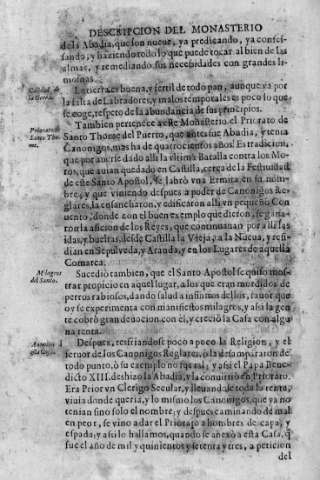 DESCRIPCION DEL MONASTERIO
de la Abadia, que son nueue, ya predicando, ya confes-
sando, y haziendo todo lo que puede tocar al bien de las
almas, y remediando sus necesidades con grandes li-
mosnas.
Calidad de
la tierra.
La tierra es buena, y fertil de todo pan, aunque ya por
la falta de Labradores, y malos temporales es poco lo que
se coge, respeto de la abundancia de sus principios.
Priorato de
Santo Tho-
me.
Tambien pertenece a este Monasterio, el Priorato de
Santo Thome del Puerto, que antes fue Abadia, y tenia
Canonigos, mas ha de quatrocientos años. Es tradicion,
que por auerse dado alli la vltima Batalla contra los Mo-
ros, que auian quedado en Castilla, cerca de la
de este Santo Apostol, se labrò vna Ermita en su nom-
bre, y que viniendo despues a poder de Canonigos Re-
glares, la ensancharon, y edificaron alli vn pequeño Con-
uento, donde con el buen exemplo que dieron, se gana-
ron la aficion de los Reyes, que continuauan por alli las
idas, y bueltas, desde Castilla la Vieja, a la Nueua, y resi-
dian en Sepulveda, y Aranda, y en los Lugares de aquella
Comarca.
Milagros
del Santo.
Sucediò tambien, que el Santo Apostol se quiso mos-
trar propicio en aquel lugar, a los que eran mordidos de
perros rabiosos, dando salud a infinitos dellos, fauor que
oy se experimenta con manifiestos milagros, y assi la gen-
te cobrò gran deuocion con el, y creciò la Casa con algu-
na renta.
Despues, resfriandose poco a poco la Religion, y el
feruor de los Canonigos Reglares, ò la desampararon de
todo punto, ò su exemplo no fue tal, y assi el Papa Bene-
dicto XIII. deshizo la Abadia, y la conuirtiò en Priorato.
Era Prior vn Clerigo Secular, y lleuandose toda la renta,
viuia donde queria, y lo mismo los Canonigos, que ya no
tenian sino solo el nombre, y despues caminando de mal
en peor, se vino a dar el Priorato a hombres de capa, y
espada, y assi lo hallamos, quando se anexò a esta Casa, q̃
fue el año de mil y quinientos y setenta y tres, a peticion
del